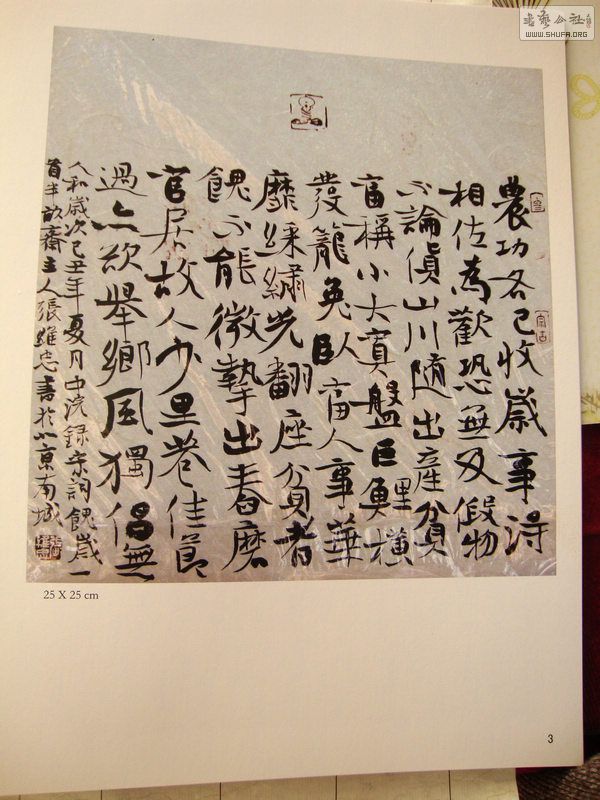 農功各已收歲事得
相佐為歡恐無及假物
不論貨山川隨出產貧
富稱小大寘盤巨鯉橫
發籠兔臥富人事華
靡綵繡光翻座貧者
餽不能微摯出舂磨
官居故人少里巷佳節
過亦欲舉鄉風獨倡無
人和歲次己丑年夏月中浣錄宋詞餽歲一
首半畝齋主人張維忠書於北京南城
25 X 25 cm
3
书艺公社
WWW.SHUFA.ORG